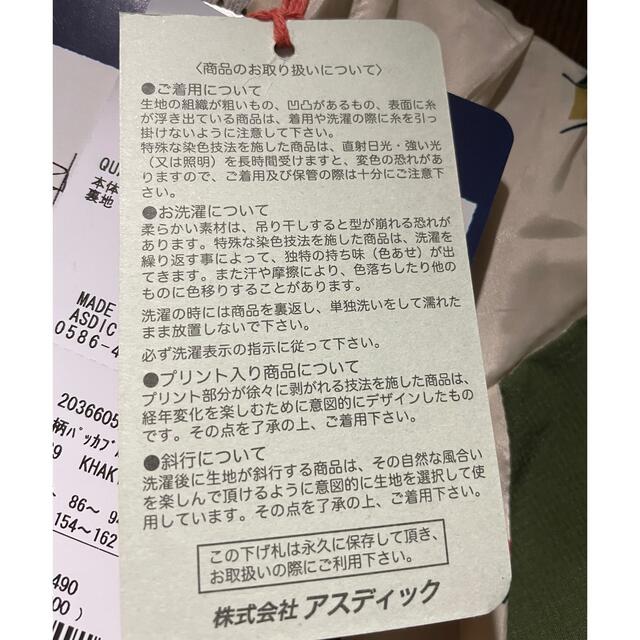 〈商品のお取り扱いについて〉
●ご着用について
生地の組織が粗いもの、凹凸があるもの、表面に糸
が浮き出ている商品は、着用や洗濯の際に糸を引っ
掛けないように注意して下さい。
特殊な染色技法を施した商品は、直射日光・強い光
（又は照明）を長時間受けますと、変色の恐れがあ
りますので、ご着用及び保管の際は十分にご注意下
さい。
●お洗濯について
柔らかい素材は、吊り干しすると型が崩れる恐れが
あります。特殊な染色技法を施した商品は、洗濯を
繰り返す事によって、独特の持ち味（色あせ）が出
てきます。また汗や摩擦により、色落ちしたり他の
ものに色移りすることがあります。
洗濯の時には商品を裏返し、単独洗いをして濡れた
まま放置しないで下さい。
必ず洗濯表示の指示に従って下さい。
●プリント入り商品について
プリント部分が徐々に剥がれる技法を施した商品は、
経年変化を楽しむために意図的にデザインしたもの
です。その点を了承の上、ご着用下さい。
●斜行について
洗濯後に生地が斜行する商品は、その自然な風合い
を楽しんで頂けるように意図的に生地を選択して使
用しています。その点を了承の上、ご着用下さい。
この下げ札は永久に保存して頂き、
お取扱いの際にご利用下さい。
株式会社 アスディック
QU
本体
裏地
MADE
ASDIC
0586-4
2036605
柄パッカブル
9 KHAK
86〜 9
154〜162
490
00 )